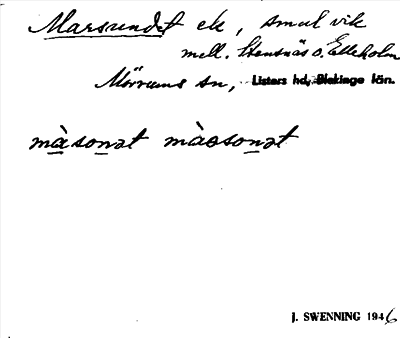 Marsundet ek, smal vik
mell. Stensnäs o. Elleholm
Mörrums sn, Listers hd, Blekinge län.
màsonət màosonət
J. SWENNING 1946